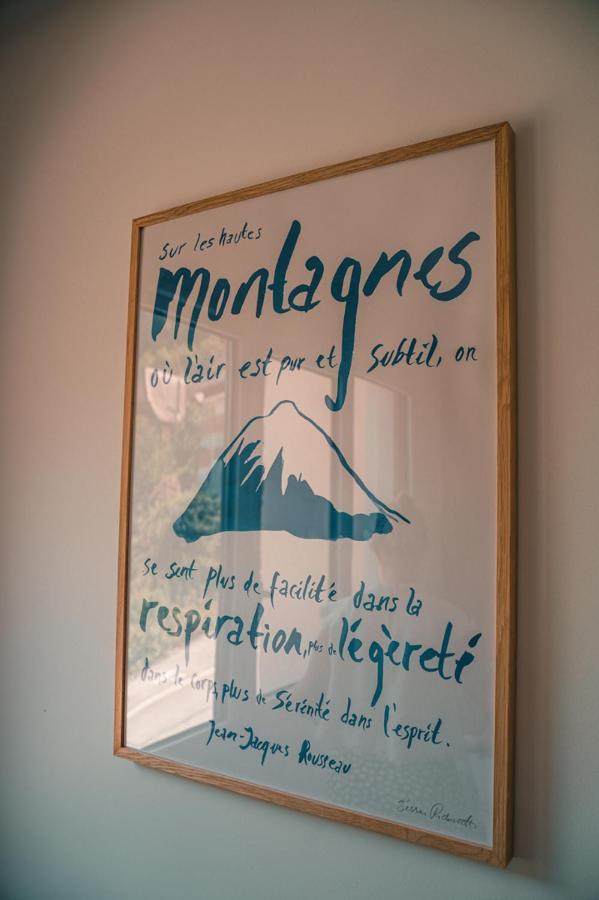 sur les hautes
montagnes
où l'air est pur et subtil, on
se sent plus de facilité dans la
respiration, plus de légèreté
dans le corps, plus de sérénité dans l'esprit.
Jean-Jacques Rousseau